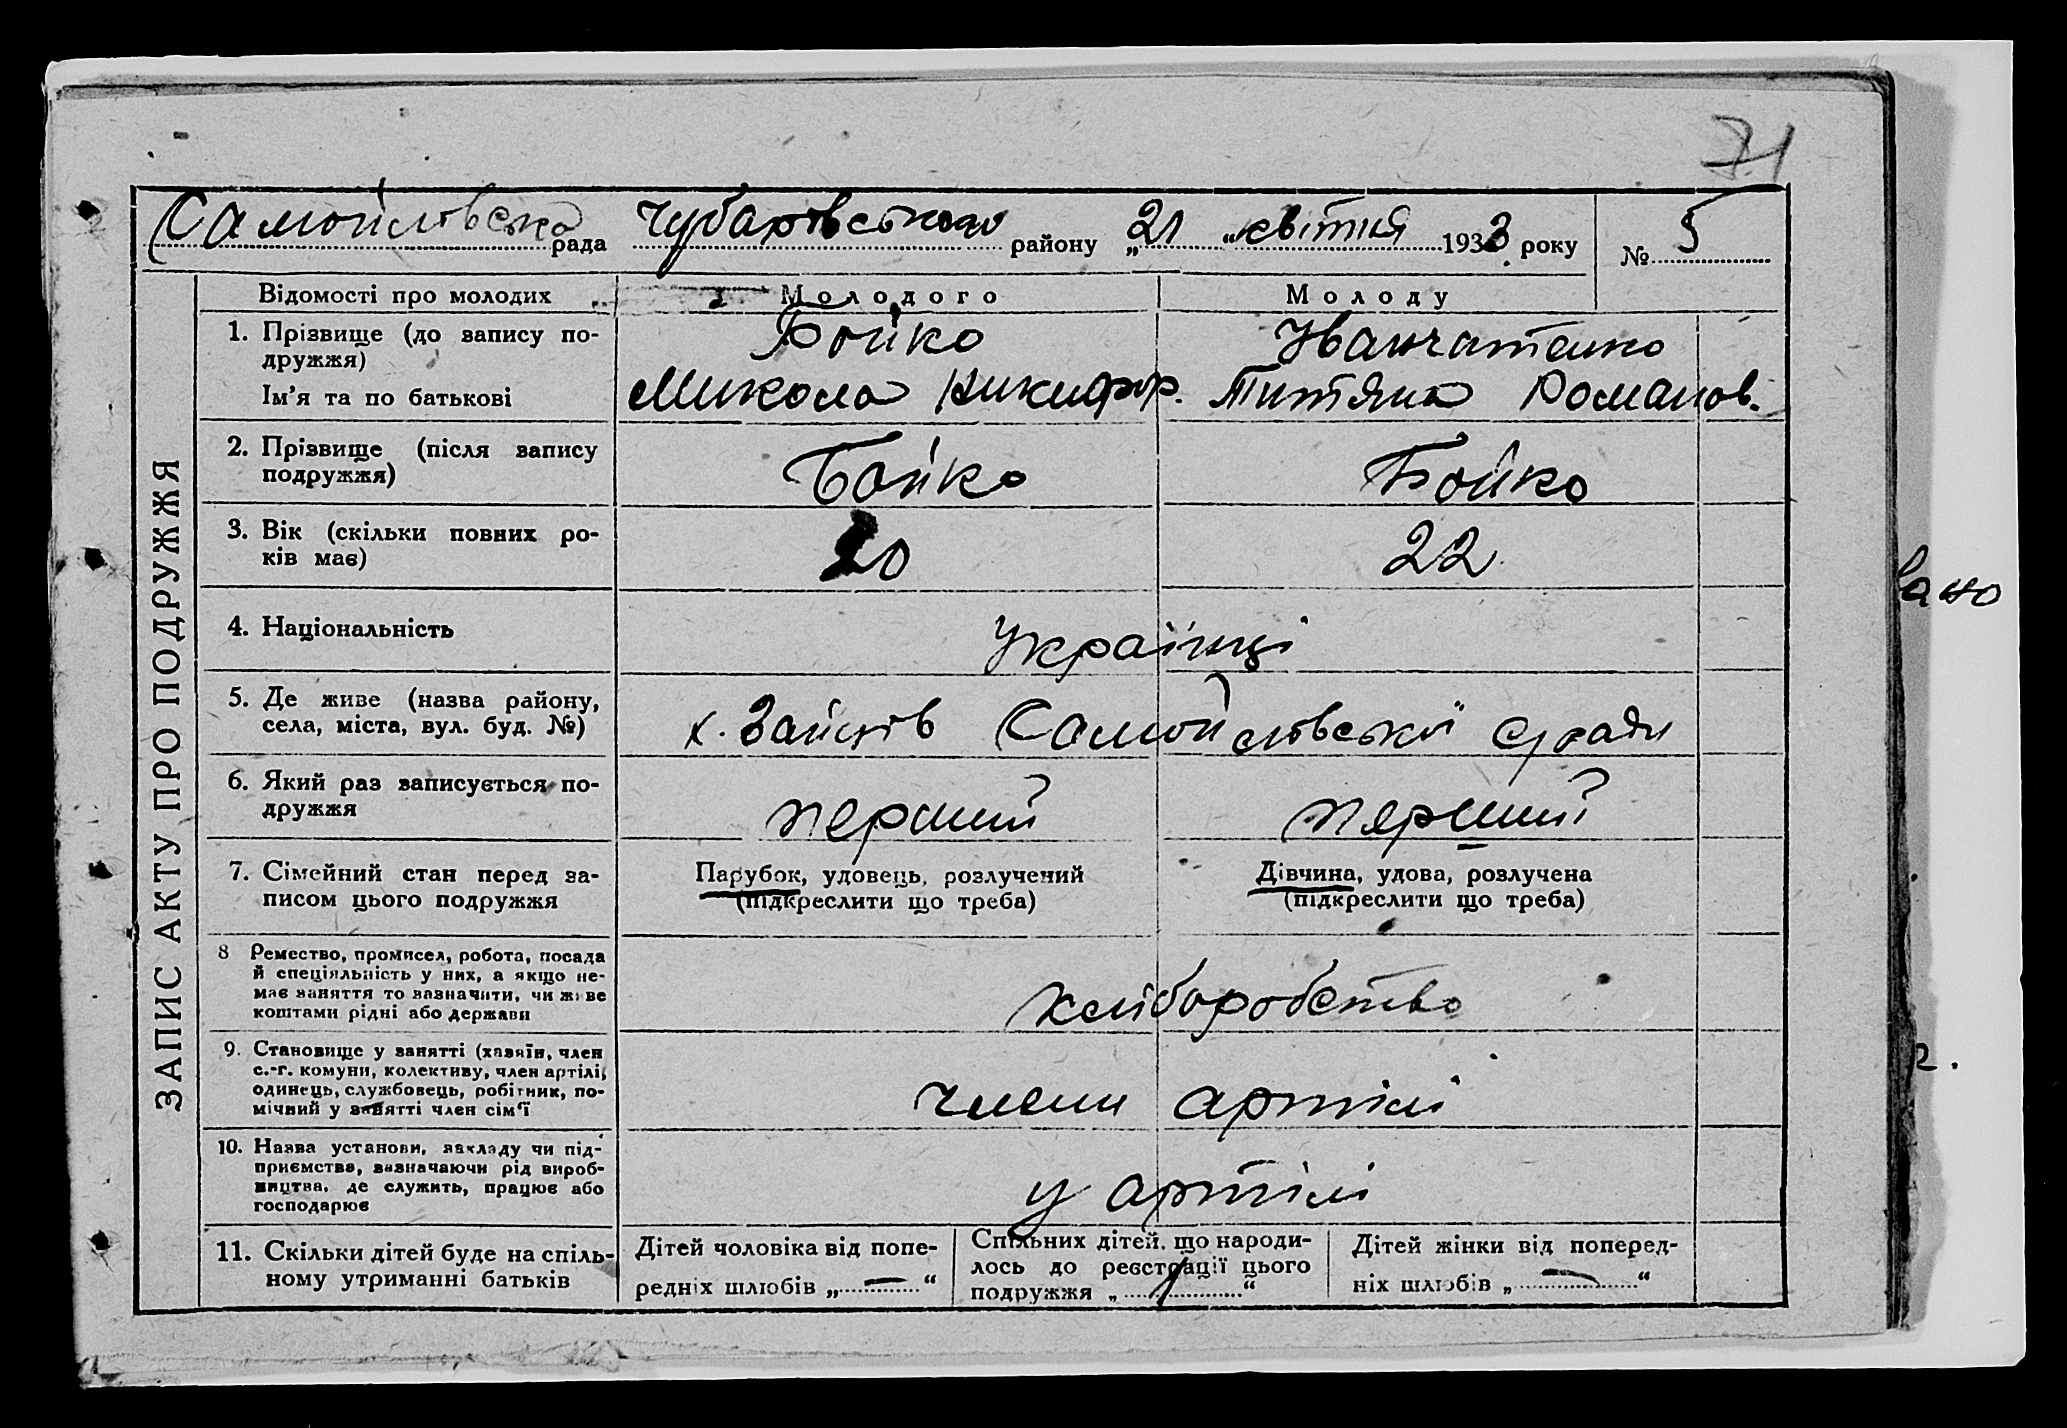 71
Самойловська рада Чубарівського району „21“ квітня 1933 року № 5
ЗАПИС АКТУ ПРО ПОДРУЖЖЯ
Відомості про молодих Молодого Молоду
1. Прізвище (до запису по-
дружжя) Бойко Іванчатенко
Ім’я та по батькові Микола Никифор. Титяна Романов.
2. Прізвище (після запису
подружжя) Бойко Бойко
3. Вік (скільки повних ро-
ків має) 20 22
4. Національність Українці
5. Де живе (назва району,
села, міста, вул. буд. №) х. Зайців Самойловської с/ради
6. Який раз записується по-
дружжя перший перший
7. Сімейний стан перед за-
писом цього подружжя
Парубок, удовець, розлучений
(підкреслити що треба)
Дівчина, удова, розлучена
(підкреслити що треба)
8 Ремество, промисел, робота, посада
й спеціяльність у них, а якщо не-
має заняття то зазначити, чи живе
коштами рідні або держави
хліборобство
9. Становище у занятті (хазяїн, член
с.-г. комуни, колективу, член артілі,
одинець, службовець, робітник, по-
мічний у занятті член сім’ї
члени артілі
10. Назва установи, закладу чи під-
приємства, зазначаючи рід вироб-
ництва, де служить, працює або
господарює
у артілі
11. Скільки дітей буде на спіль-
ному утриманні батьків
Дітей чоловіка від попе-
редніх шлюбів „—“
Спільних дітей, що народи-
лось до реєстрації цього
подружжя „1“
Дітей жінки від поперед-
ніх шлюбів „—“